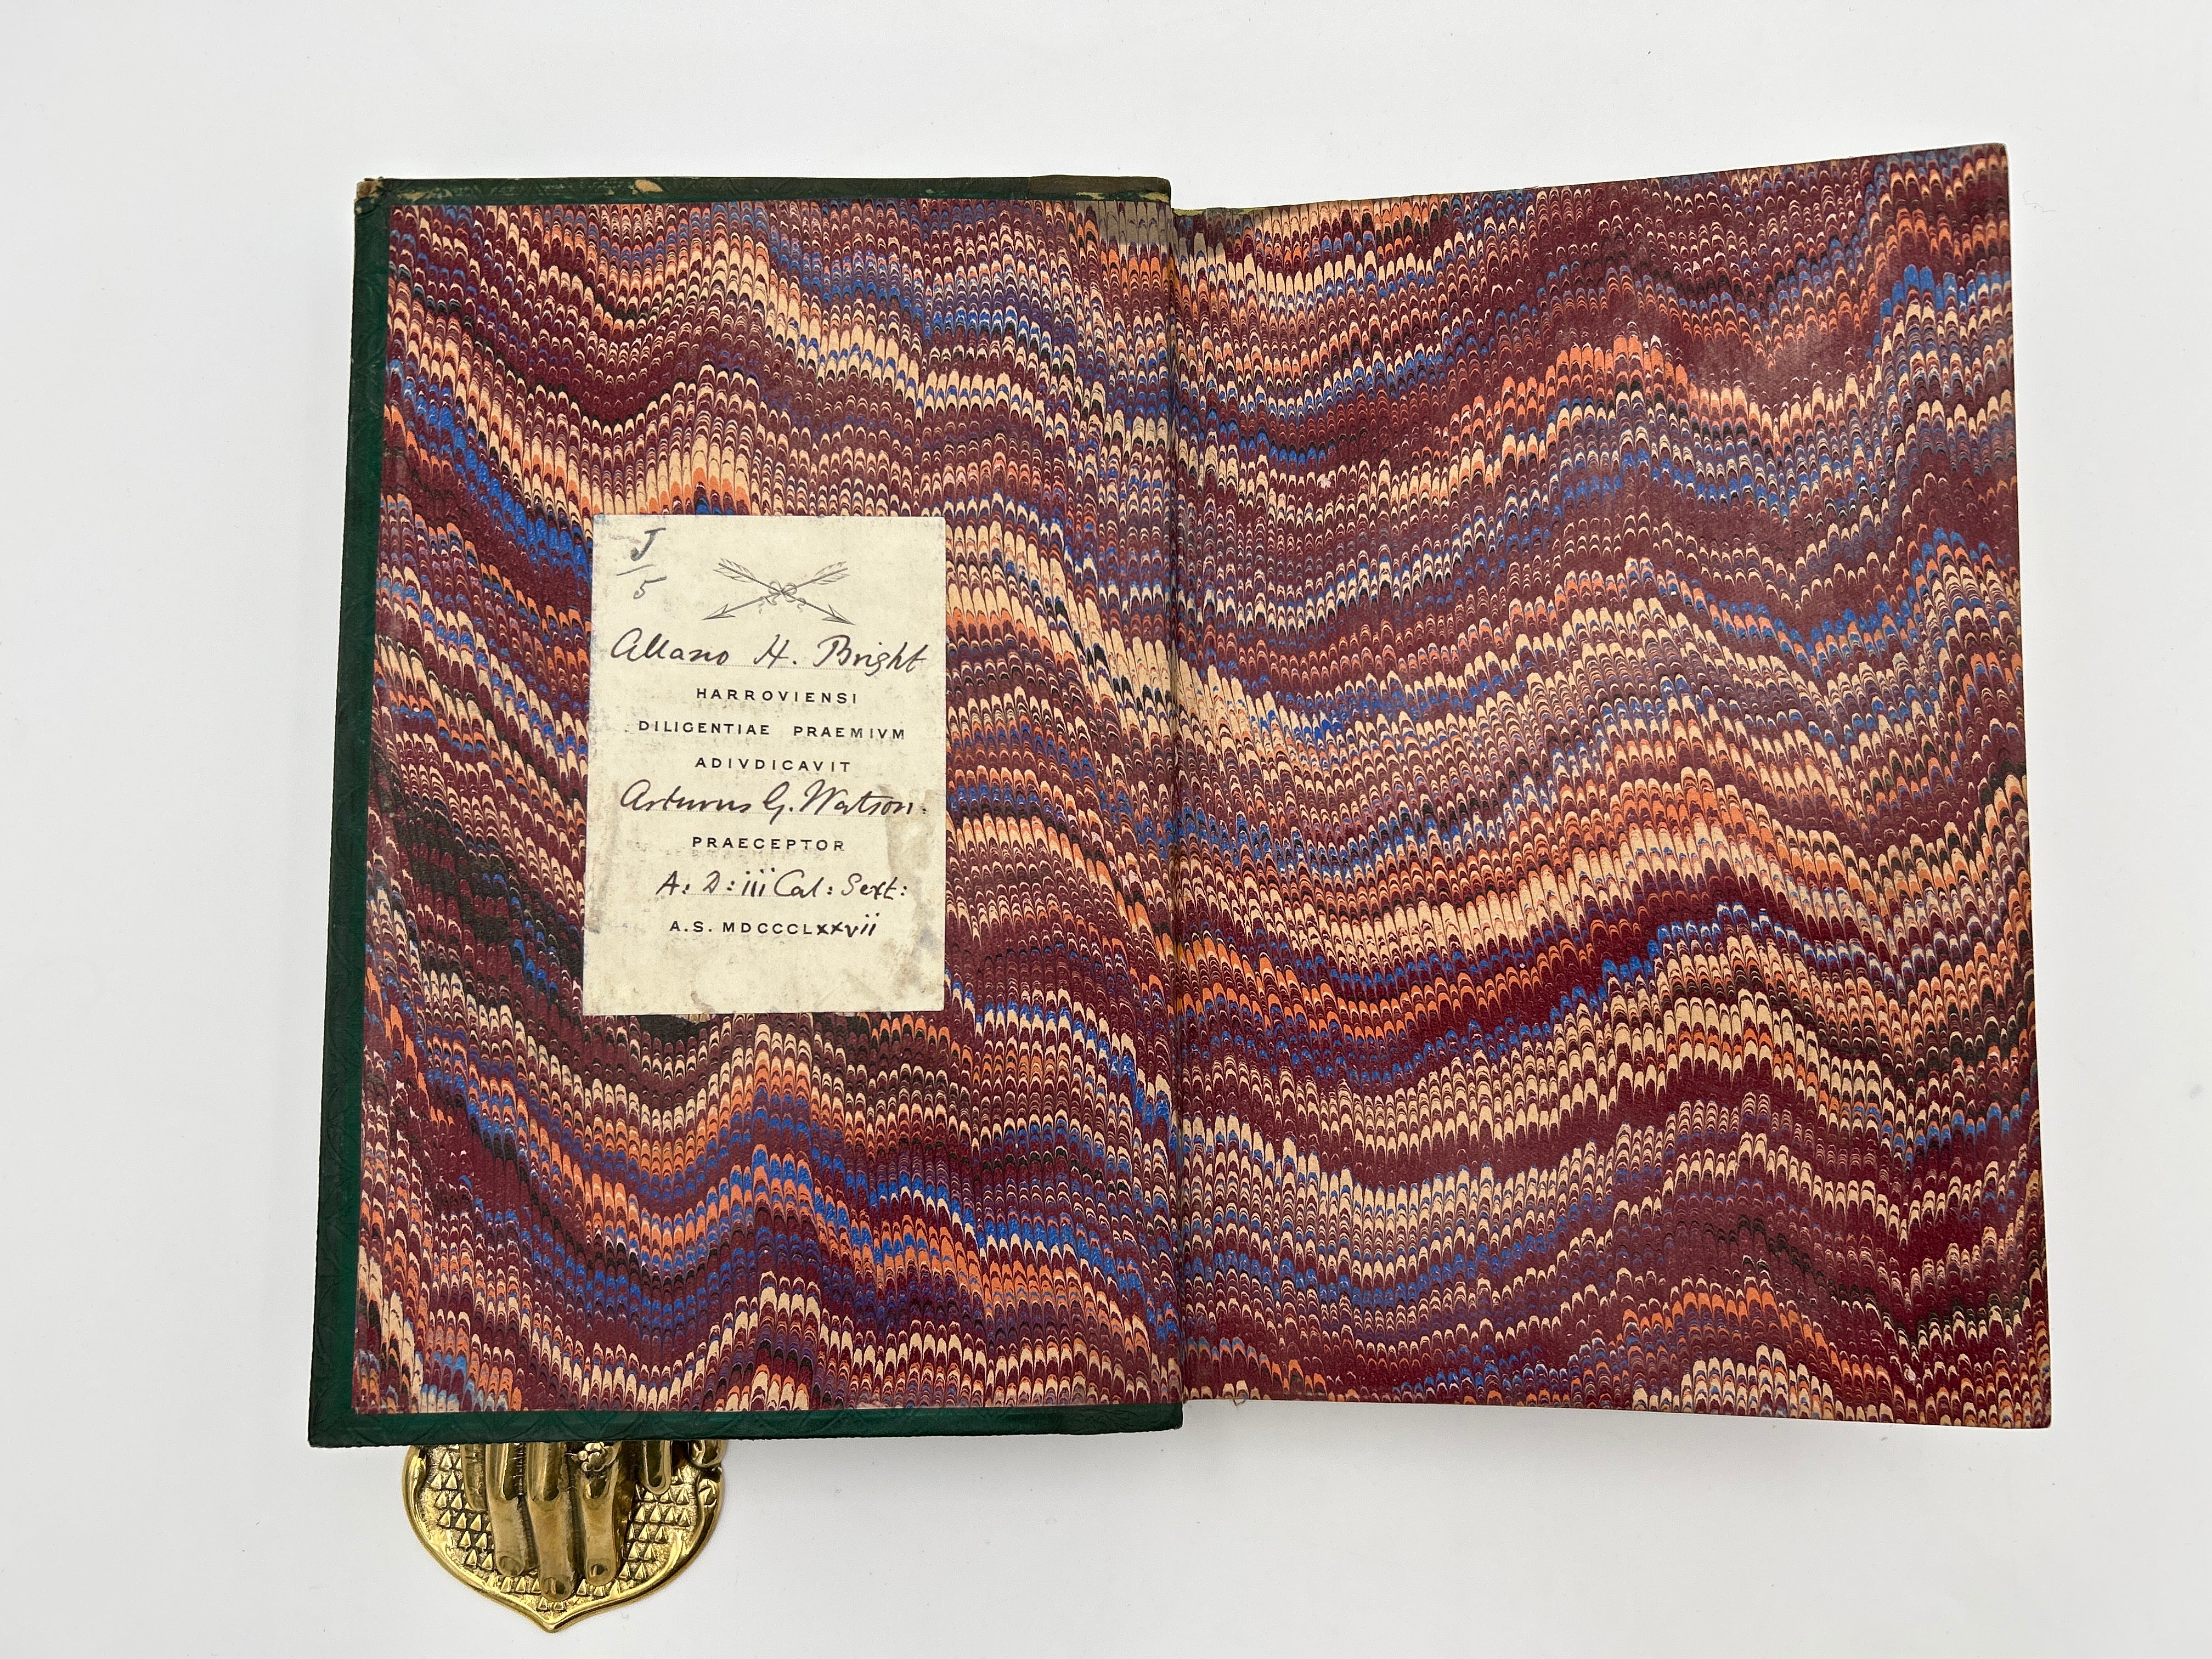 J
5
Allano H. Bright
HARROVIENSI
DILIGENTIAE PRAEMIVM
ADIVDICAVIT
Arturus G. Watson.
PRAECEPTOR
A: D: iii Cal: Sext:
A.S. MDCCCLxxvii